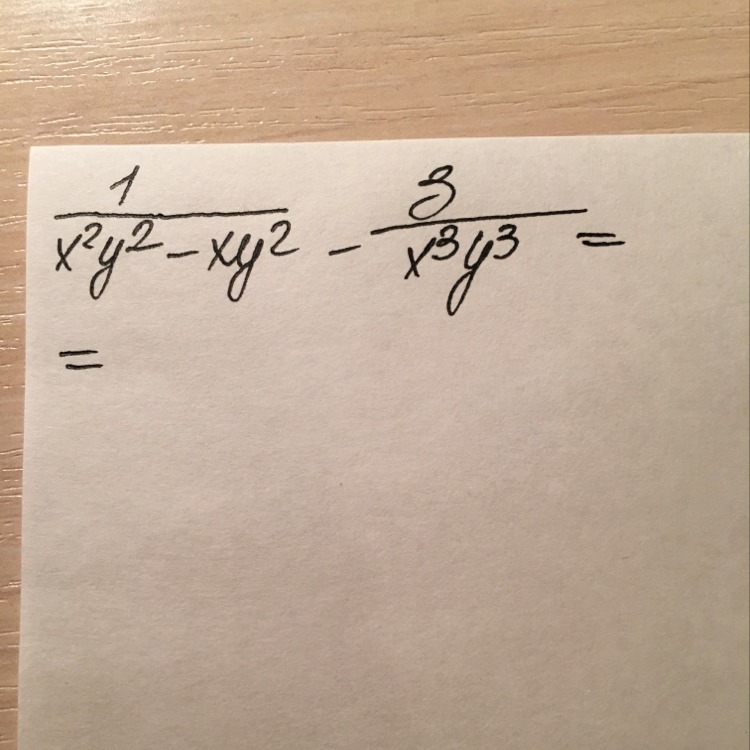 1/(x²y² - xy²) - 3/(x³y³) =
=